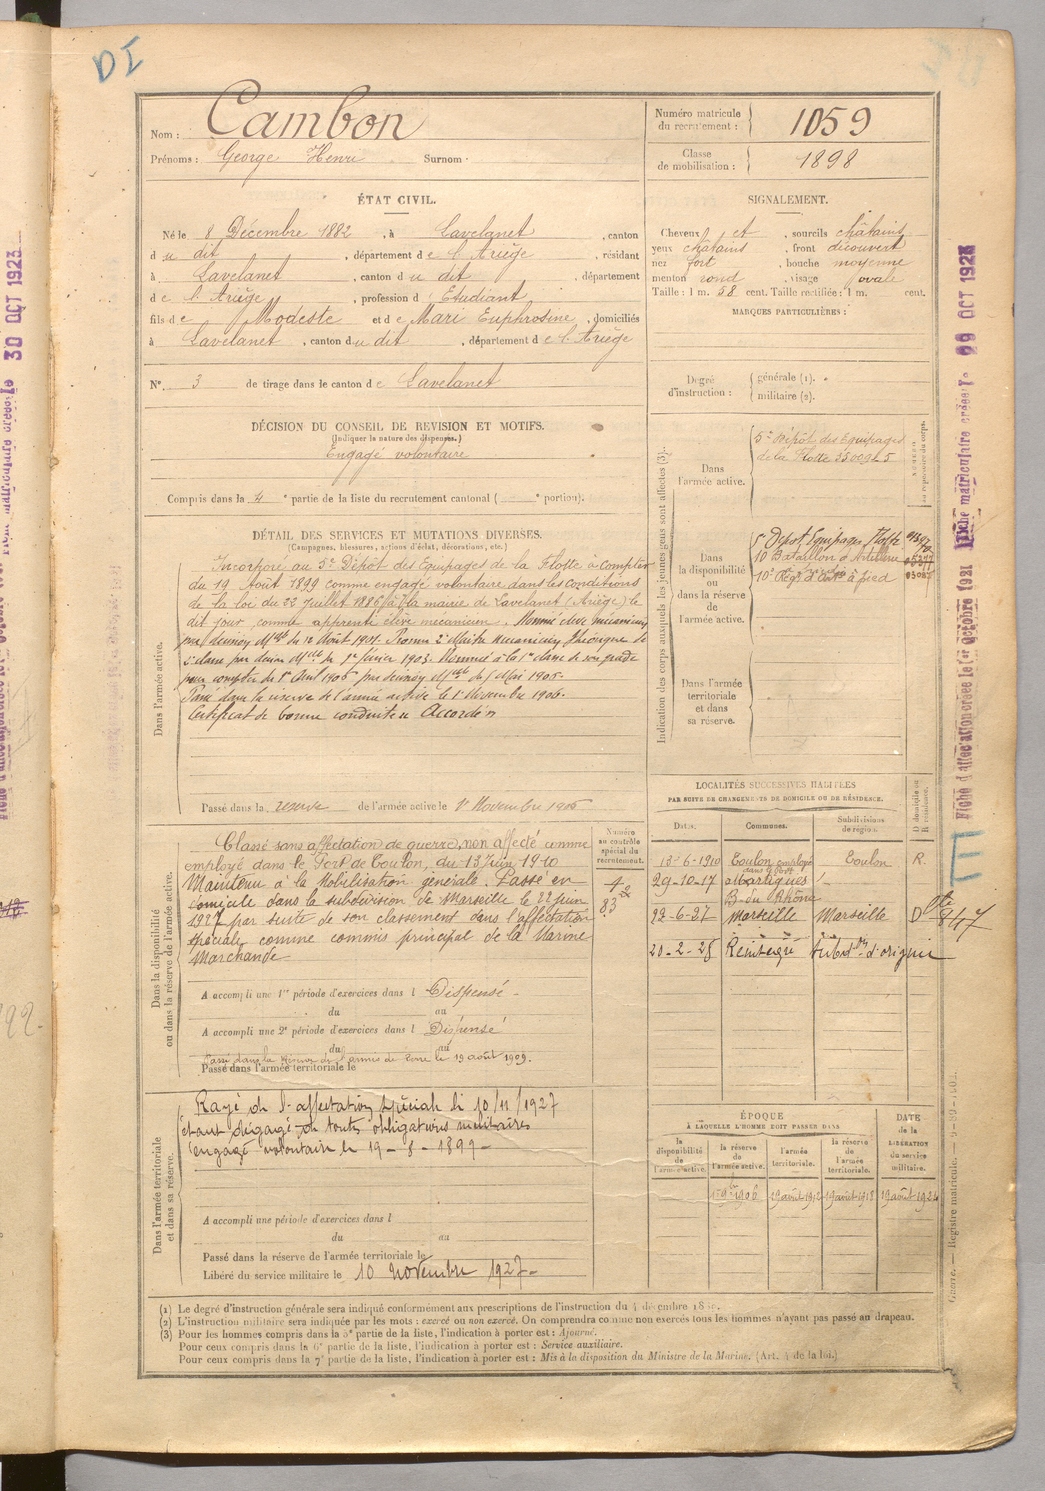 DI
Nom : Cambon
Prénoms : George Henri Surnom :
Numéro matricule du recrutement : 1059
Classe de mobilisation : 1898
ÉTAT CIVIL.
Né le 8 Décembre 1882, à Lavelanet, canton
du dit, département de l'Ariège, résidant
à Lavelanet, canton du dit, département
de l'Ariège, profession d Etudiant
fils de Modeste et de Mari Euphrosine, domiciliés
à Lavelanet, canton du dit, département de l'Ariège
N° 3 de tirage dans le canton de Lavelanet
SIGNALEMENT.
Cheveux et, sourcils châtains
yeux châtains, front découvert
nez fort, bouche moyenne
menton rond, visage ovale
Taille : 1 m. 58 cent. Taille rectifiée : 1 m. cent.
MARQUES PARTICULIÈRES :
Degré d'instruction : générale (1).
militaire (2).
DÉCISION DU CONSEIL DE REVISION ET MOTIFS.
(Indiquer la nature des dispenses.)
Engagé volontaire
Compris dans la 4e partie de la liste du recrutement cantonal ( e portion).
DÉTAIL DES SERVICES ET MUTATIONS DIVERSES.
(Campagnes, blessures, actions d'éclat, décorations, etc.)
Dans l'armée active.
Incorporé au 5e Dépôt des Equipages de la Flotte à compter
du 19 août 1899 comme engagé volontaire dans les conditions
de la loi du 22 juillet 1886 à la mairie de Lavelanet (Ariège) le
dit jour, comme apprenti élève mécanicien. Nommé élève mécanicien
du 12 Août 1901.
1er février 1903. Nommé à la 1re classe de son grade
pour compter du 1er Avril 1905
Passé dans la réserve de l'armée active le 1er Novembre 1906.
Certificat de bonne conduite Accordé
Passé dans la réserve de l'armée active le 1er Novembre 1906
Indication des corps auxquels les jeunes gens sont affectés (3).
NUMÉRO au répertoire du corps.
Dans l'armée active.
5e Dépôt des Equipages
de la Flotte 35009 L 5
Dans la disponibilité ou dans la réserve de l'armée active.
5e Dépôt Equipages Flotte
10 Bataillon d'Artillerie
10e Régt d'Art. à pied
Dans l'armée territoriale et dans sa réserve.
LOCALITÉS SUCCESSIVES HABITÉES
PAR SUITE DE CHANGEMENTS DE DOMICILE OU DE RÉSIDENCE.
Dates. Communes. Subdivisions de région. D domicile ou R résidence.
13-6-1910 Toulon employé dans le Port Toulon R.
29-10-17 Martigues
B. du Rhône
22-6-27 Marseille Marseille D
20-2-28 Réintégré Subdon d'origine
847
Dans la disponibilité ou dans la réserve de l'armée active.
Numéro au contrôle spécial du recrutement.
Classé sans affectation de guerre, non affecté comme
employé dans le Port de Toulon, du 13 Juin 1910
Maintenu à la Mobilisation générale. Passé en
domicile dans la subdivision de Marseille le 22 juin
1927 par suite de son classement dans l'affectation
spéciale comme commis principal de la Marine
Marchande
A accompli une 1re période d'exercices dans l Dispensé
du au
A accompli une 2e période d'exercices dans l Dispensé
du au
Passé dans la Réserve de l'armée de terre le 19 août 1909.
Passé dans l'armée territoriale le
Dans l'armée territoriale et dans sa réserve.
Rayé de l'affectation spéciale le 10/11/1927
étant dégagé de toutes obligations militaires
engagé volontaire le 19-8-1899
A accompli une période d'exercices dans l
du au
Passé dans la réserve de l'armée territoriale le
Libéré du service militaire le 10 novembre 1927
ÉPOQUE
À LAQUELLE L'HOMME DOIT PASSER DANS
la disponibilité de l'armée active. la réserve de l'armée active. l'armée territoriale. la réserve de l'armée territoriale. DATE de la LIBÉRATION du service militaire.
19 août 1912 19 août 1918 19 août 1924
(1) Le degré d'instruction générale sera indiqué conformément aux prescriptions de l'instruction du 4 décembre 18
(2) L'instruction militaire sera indiquée par les mots : exercé ou non exercé. On comprendra comme non exercés tous les hommes n'ayant pas passé au drapeau.
(3) Pour les hommes compris dans la 5e partie de la liste, l'indication à porter est : Ajourné.
Pour ceux compris dans la 6e partie de la liste, l'indication à porter est : Service auxiliaire.
Pour ceux compris dans la 7e partie de la liste, l'indication à porter est : Mis à la disposition du Ministre de la Marine. (Art. 4 de la loi.)
Fiche d'affectation créée le 1er Octobre 1921 Fiche matriculaire créée le 29 OCT 1923
Guerre. — Registre matricule.
30 OCT 1923